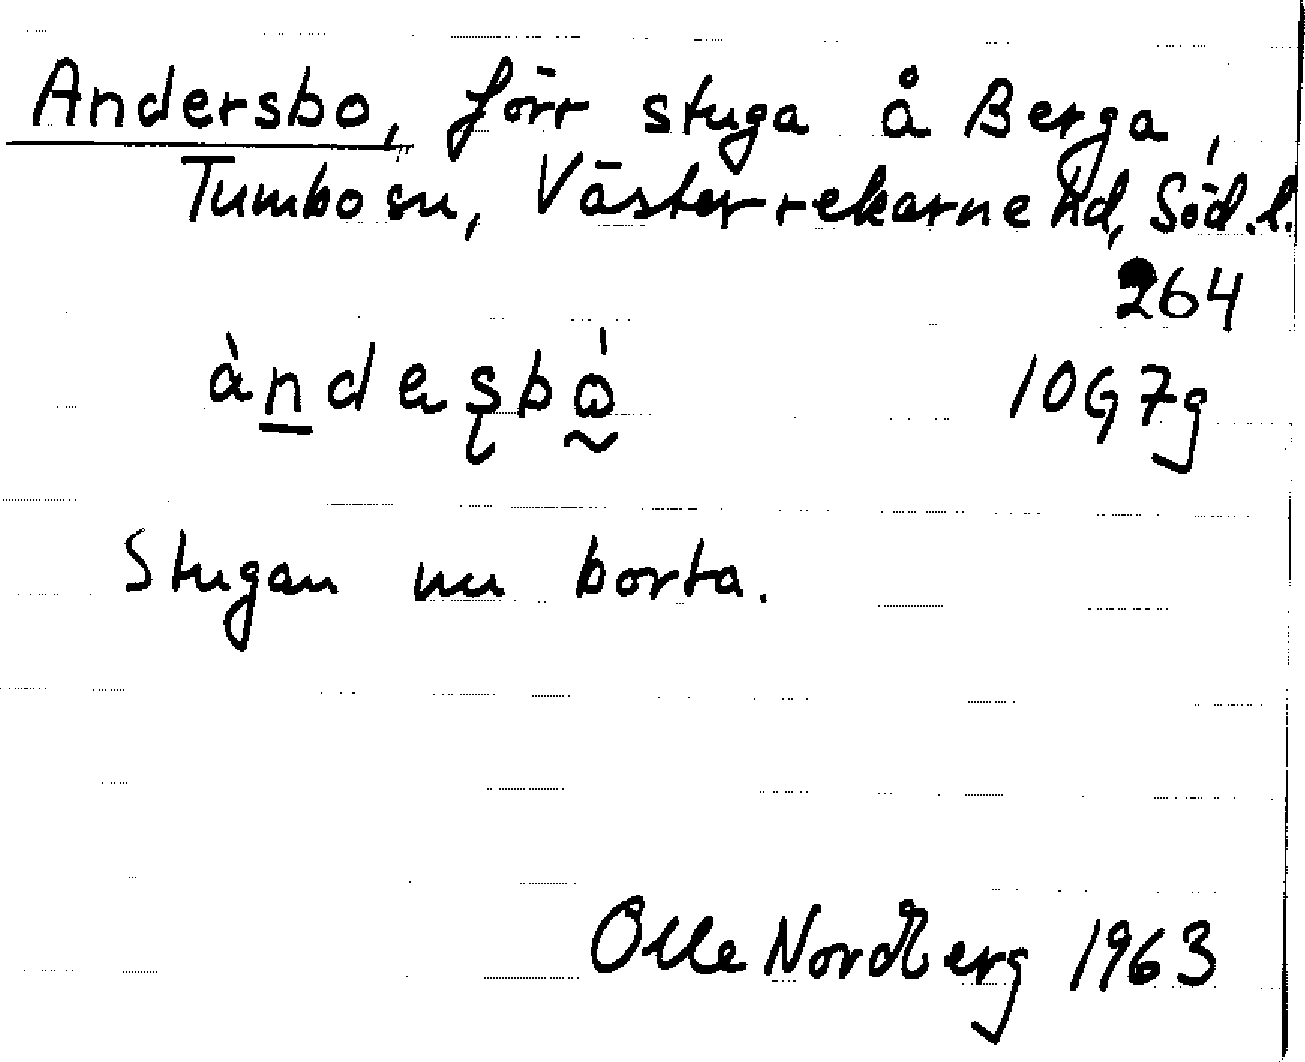 Andersbo, förr stuga å Berga,
Tumbo sn, Västerrekarne hd, Söd. l.
264
àndeʂbό̰ 10G7g
Stugan nu borta.
Olle Nordberg 1963